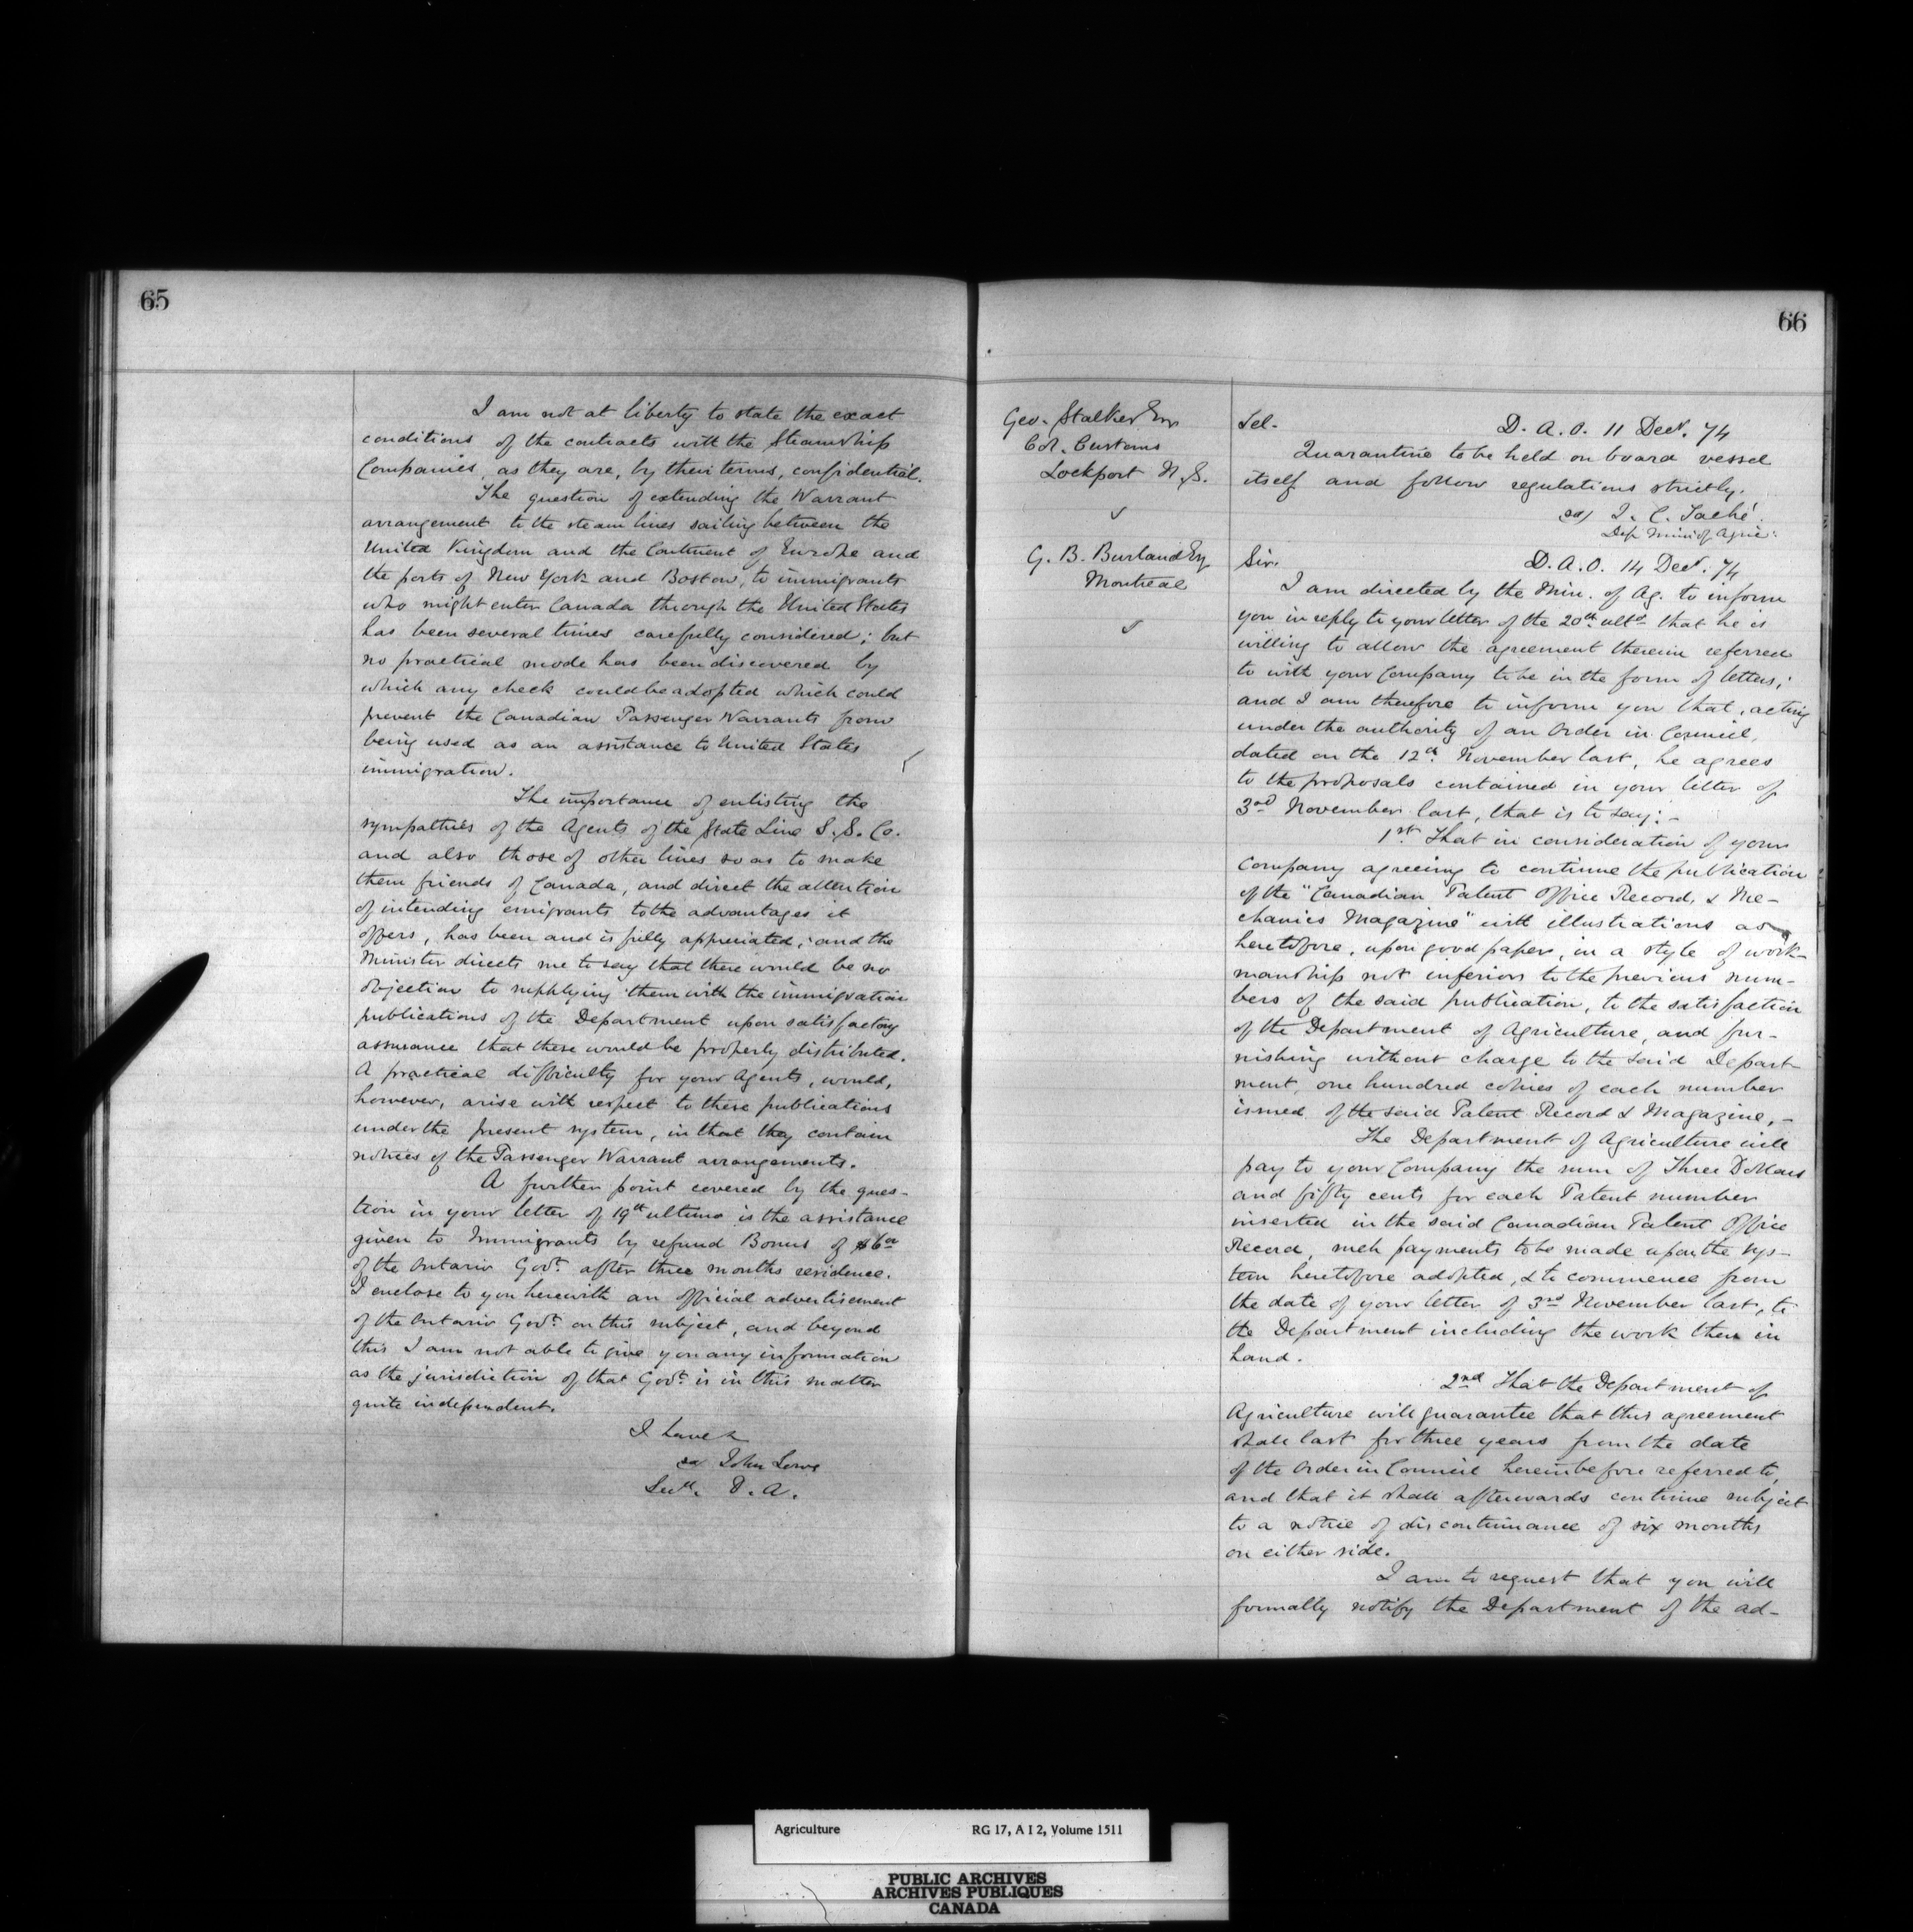 65
I am not at liberty to state the exact
conditions of the contracts with the Steamship
Companies, as they are, by their terms, confidential.
The question of extending the Warrant
arrangement to the steam lines sailing between the
United Kingdom and the Continent of Europe and
the ports of New York and Boston, to immigrants
who might enter Canada through the United States
has been several times carefully considered; but
no practical mode has been discovered by
which any check could be adopted which could
prevent the Canadian Passenger Warrants from
being used as an assistance to United States
immigration.
The importance of enlisting the
sympathies of the Agents of the State Line S. S. Co.
and also those of other lines so as to make
them friends of Canada, and direct the attention
of intending emigrants to the advantages it
offers, has been and is fully appreciated; and the
Minister directs me to say that there would be no
objection to supplying them with the immigration
publications of the Department upon satisfactory
assurance that these would be properly distributed.
A practical difficulty for your Agents, would,
however, arise with respect to these publications
under the present system, in that they contain
notices of the Passenger Warrant arrangements.
A further point covered by the ques-
tion in your letter of 19th ultimo is the assistance
given to Immigrants by refund Bonus of $6.00
of the Ontario Govt. after three months residence.
I enclose to you herewith an official advertisement
of the Ontario Govt. on this subject, and beyond
this I am not able to give you any information
as the jurisdiction of that Govt. is in this matter
quite independent.
I have &
sd John Lowe
Secty. D. A.
66
Geo. Stalker Esq
Col. Customs
Lockport N.S.
Tel.
D. A. O. 11 Decr. 74
Quarantine to be held on board vessel
itself and follow regulations strictly.
sd/ J. C. Taché
Dep Min of Agric:
G. B. Burland Esq
Montreal
Sir.
D. A. O. 14 Decr. 74
I am directed by the Min. of Ag. to inform
you in reply to your letter of the 20th ulto that he is
willing to allow the agreement therein referred
to with your Company to be in the form of letters;
and I am therefore to inform you that, acting
under the authority of an Order in Council,
dated on the 12th November last, he agrees
to the proposals contained in your letter of
3rd November last, that is to say: -
1st. That in consideration of your
Company agreeing to continue the publication
of the "Canadian Patent Office Record, & Me-
chanics Magazine" with illustrations as
heretofore, upon good paper, in a style of work-
manship not inferior to the previous num-
bers of the said publication, to the satisfaction
of the Department of Agriculture, and fur-
nishing without charge to the said Depart-
ment, one hundred copies of each number
issued of the said Patent Record & Magazine, -
The Department of Agriculture will
pay to your Company the sum of Three Dollars
and fifty cents for each Patent number
inserted in the said Canadian Patent Office
Record, such payments to be made upon the sys-
tem heretofore adopted, & to commence from
the date of your letter of 3rd November last, to
the Department including the work then in
hand.
2nd That the Department of
Agriculture will guarantee that this agreement
shall last for three years from the date
of the Order in Council hereinbefore referred to,
and that it shall afterwards continue subject
to a notice of discontinuance of six months
on either side.
I am to request that you will
formally notify the Department of the ad-
Agriculture RG 17, A I 2, Volume 1511
PUBLIC ARCHIVES
ARCHIVES PUBLIQUES
CANADA